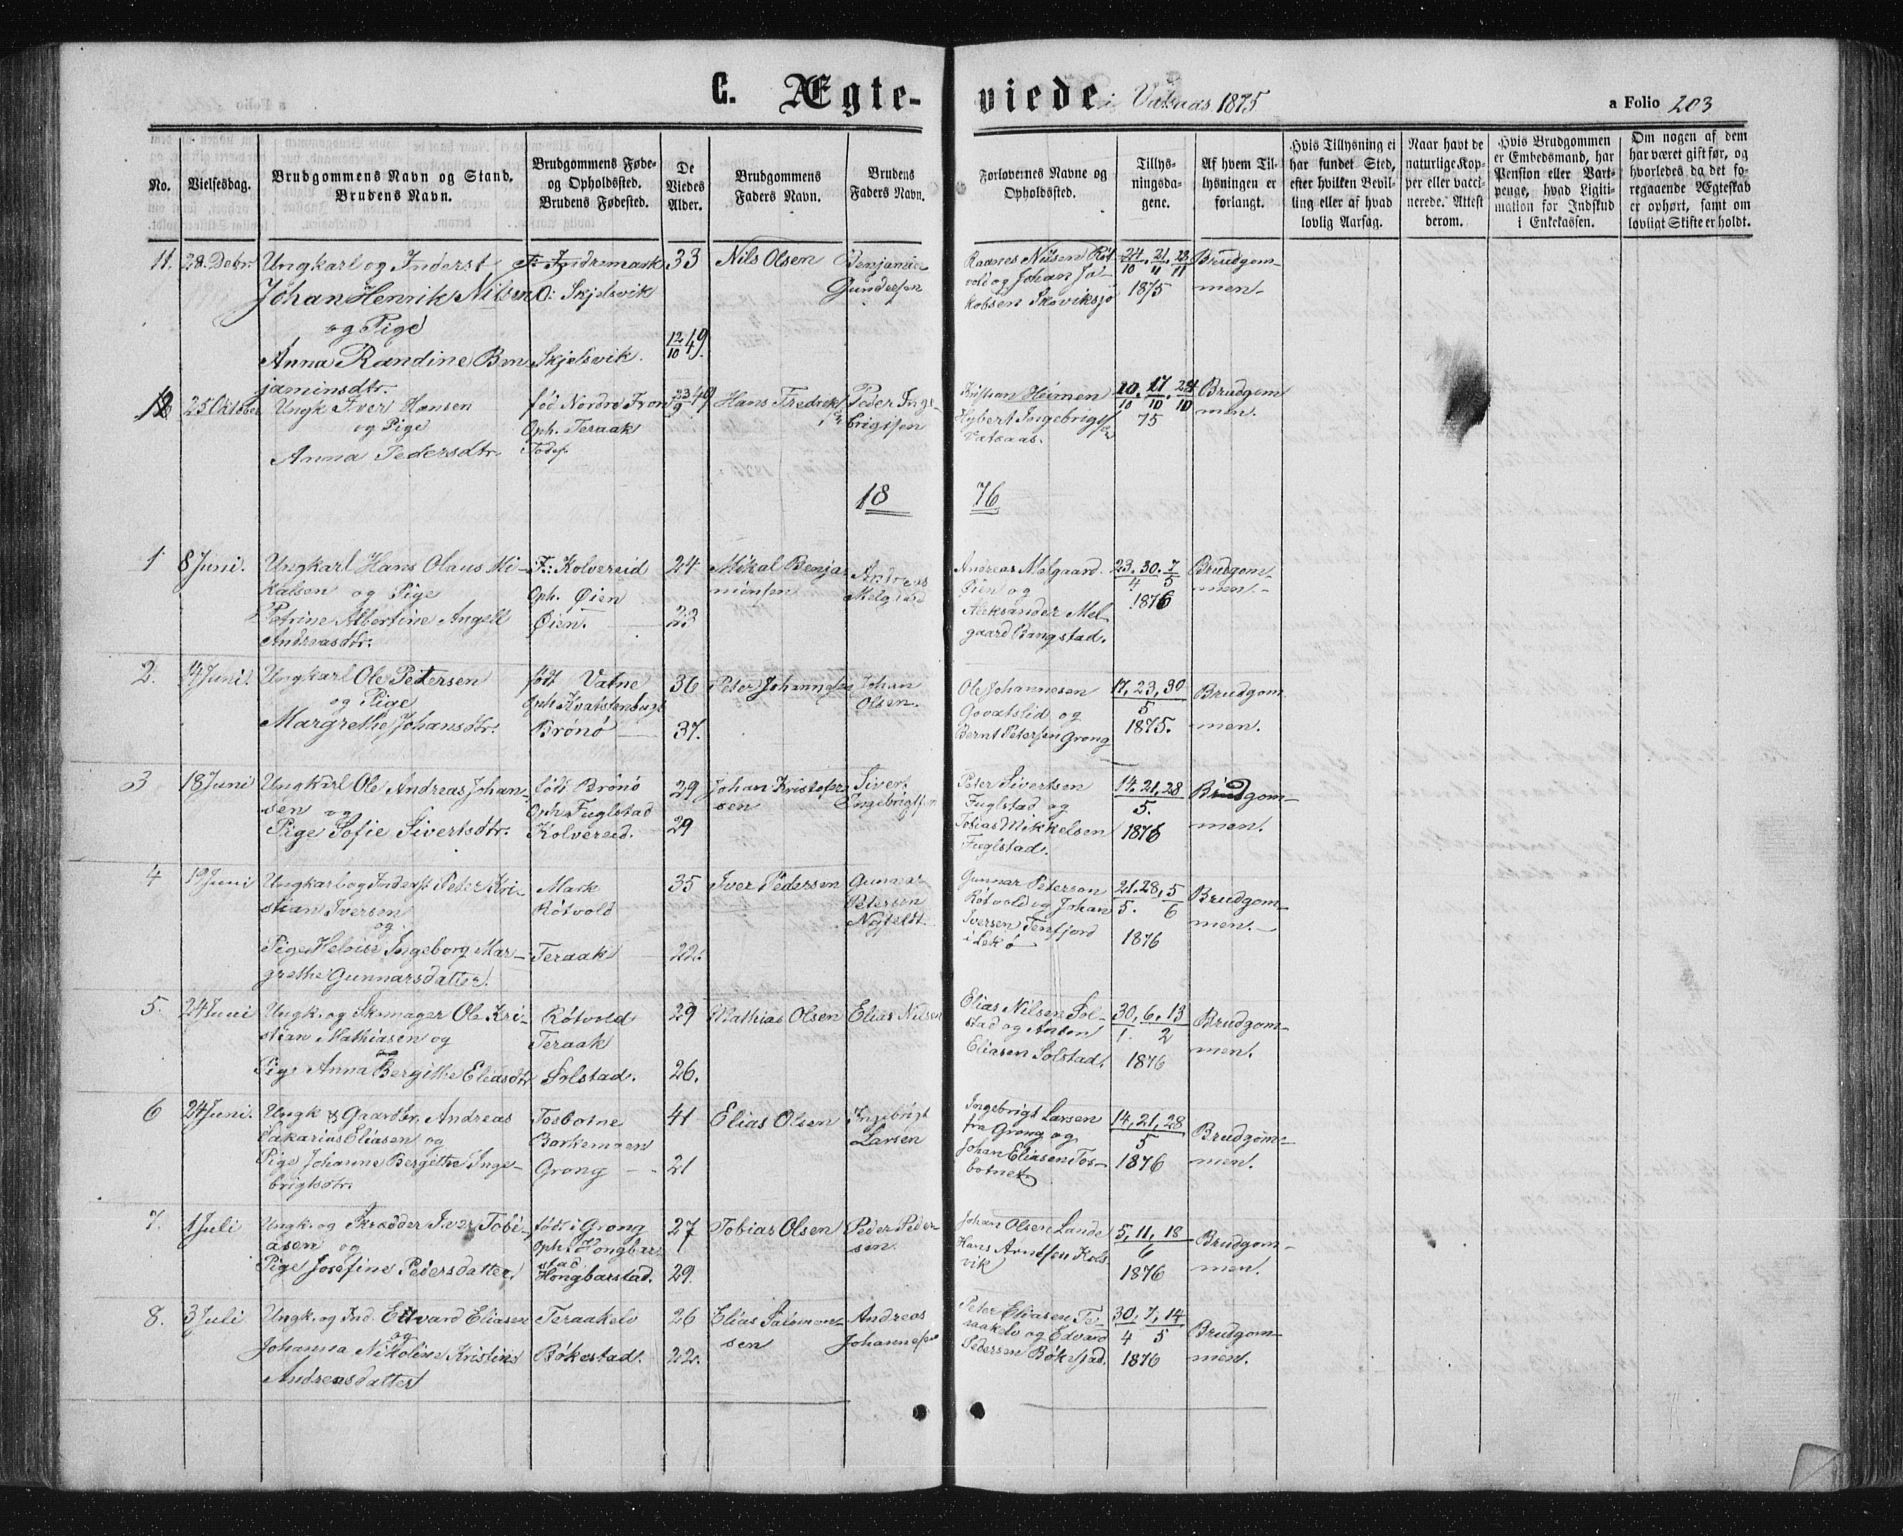 C. Ægte-viede i Vatnas 1875
a Folio 203
No.
Vielsesdag.
Brudgommens Navn og Stand.
Brudens Navn.
Brudgommens Føde-
og Opholdssted.
Brudens Fødested.
De
Viedes
Alder.
Brudgommens
Faders Navn.
Brudens
Faders Navn.
Forlovernes Navne og
Opholdssted.
Tillys-
ningsda-
gene.
Af hvem Til-
lysningen er
forlangt.
Hvis Tillysning ei
har fundet Sted,
efter hvilken Bevil-
ling eller af hvad
lovlig Aarsag.
Naar havt de
naturlige Kop-
per eller vacci-
nerede. Attest
derom.
Hvis Brudgommen
er Embedsmand, har
Pension eller Vart-
penge, hvad Ligiti-
mation for Indskud
i Enkekassen.
Om nogen af dem
har været gift før, og
hvorledes da det fo-
regaaende Ægteskab
er ophørt, samt om
lovligt Skifte er holdt.
11. 28. Debr.
Ungkarl og Inderst
Johan Henrik Nilsen
og Pige
Anna Randine Ben
jaminsdtr.
F: Indremark
O: Skjelsvik
Skjelsvik.
33
12/10 49.
Nils Olsen
Benjamin
Gundersen
Raanes Nilsen Röt
vold og Johan Ja-
kobsen Skoviksjø
24. 21. 28
10 11 11
1875
Brudgom-
men.
12 25 Oktober
Ungk Iver Hansen
og Pige
Anna Pedersdtr.
fød Nordre Fron
Oph. Teraak
23/9 49
Hans Fredrik
Peder Inge-
brigtsen
Kristian Heimen
Hybert Ingebrigts
Vatsaas.
10. 17. 24
10 10 10
75
Brudgom
men.
18 76
1. 8 Juni.
Ungkarl Hans Olaus Mi-
kalsen og Pige
Petrine Albertine Angell
Andreasdtr.
F: Kolvereid
Oph. Øien
Øien.
24
23
Mikal Benja
minsen
Andreas
Melgaard
Andreas Melgaard.
Øien og
Aleksander Mel-
gaard Bangstad.
23. 30. 7
4 5
1876
Brudgom-
men.
2. 14 Juni.
Ungkarl Ole Petersen
og Pige
Margrethe Johansdtr.
født Vatne
Brönö
36
37.
Peter Johannesen
Johan
Olsen.
Ole Johannesen
Govatslid og
Bernt Petersen Grong
17, 23, 30
5
1875.
Brudgom
men.
3 18 Juni
Ungkarl Ole Andreas Johan-
sen og
Pige Sofie Sivertsdtr.
født Brönö
Oph. Fuglstad
Kolvereid.
29
29
Johan Kristofer
sen
Sivert
Ingebrigtsen
Peter Sivertsen
Fuglstad og
Tobias Mikkelsen
Fuglstad.
14, 21, 28
5.
1876
Brudgom-
men.
4 19 Juni
Ungkarl og Inderst Peter Kri-
stian Iversen
og
Pige Heloise Ingeborg Mar-
grethe Gunnarsdatter.
Mark
Rötvold
Teraak
35
22.
Iver Pedersen
Gunnar
Petersen
Gunnar Petersen
Rötvold og Johan
Iversen Tenfjord
i Lekø
21. 28, 5
5. 6
1876
Brudgom-
men.
5. 24 Juni
Ungk. og Skomager Ole Kri-
stian Mathiasen og
Pige Anna Bergitte Eliasdtr
Rötvold
Teraak
Solstad.
29
26.
Mathias Olsen
Elias Nilsen
Elias Nilsen Sol-
stad og Anton
Eliasen Solstad.
30, 6, 13
1. 2
1876
Brudgom-
men.
6 24 Juni.
Ungk & Gaardbr. Andreas
Sakarias Eliasen og
Pige Johanne Bergitte Inge-
brigtsdtr.
Tosbotne
Barkemoen
Grong
41
21
Elias Olsen
Ingebrigt
Larsen
Ingebrigt Larsen
fra Grong og
Johan Eliasen Tos-
botnet.
14, 21, 28
5
1876
Brudgom-
men.
7. 1 Juli
Ungk. og Skrædder Iver Tobi-
asen og
Pige Josefine Pedersdatter.
født i Grong
Oph. Hongbar
stad
Hongbarstad.
27
29.
Tobias Olsen
Peder Peder
sen.
Johan Olsen Lande
Hans Arntsen Kols
vik
5, 11, 18
6
1876
Brudgom-
men.
8. 3 Juli
Ungk. og Ind. Edvard Eliasen
og
Johanna Nikoline Kristine
Andreasdatter
Teraakelv
Bökestad.
26
22.
Elias Salomon
sen
Andreas
Johannesen
Peter Eliasen Te-
raakelv og Edvard
Pedersen Bökestad.
30, 7, 14
4 5
1876
Brudgom-
men.